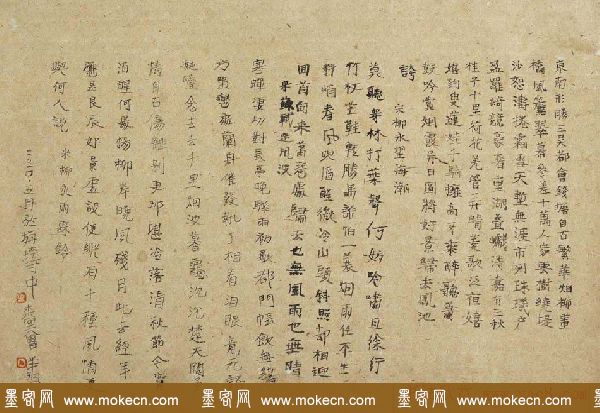 東南形勝三吳都會錢塘自古繁華烟柳畫
橋風簾翠幕參差十萬人家雲樹繞堤
沙怒濤捲霜雪天塹無涯市列珠璣户
盈羅綺競豪奢重湖疊巘清嘉有三秋
桂子十里荷花羌管弄晴菱歌泛夜嬉
嬉釣叟蓮娃千騎擁高牙乘醉聽簫
鼓吟賞烟霞異日圖將好景歸去鳳池
誇
宋柳永望海潮
莫聽穿林打葉聲何妨吟嘯且徐行
竹杖芒鞋輕勝馬誰怕一蓑烟雨任平生
料峭春風吹酒醒微冷山頭斜照却相迎
回首向來蕭瑟處歸去也無風雨也無晴
宋蘇軾定風波
寒蟬凄切對長亭晚驟雨初歇都門帳飲無緒
方留戀處蘭舟催發執手相看淚眼竟無語
凝噎念去去千里烟波暮靄沉沉楚天闊
情自古傷離別更那堪冷落清秋節今宵
酒醒何處楊柳岸曉風殘月此去經年
應是良辰好景虛設便縱有千種風情更
與何人說 宋柳永雨霖鈴
墨客网 www.mokecn.com 墨客网 www.mokecn.com 墨客网 www.mokecn.com